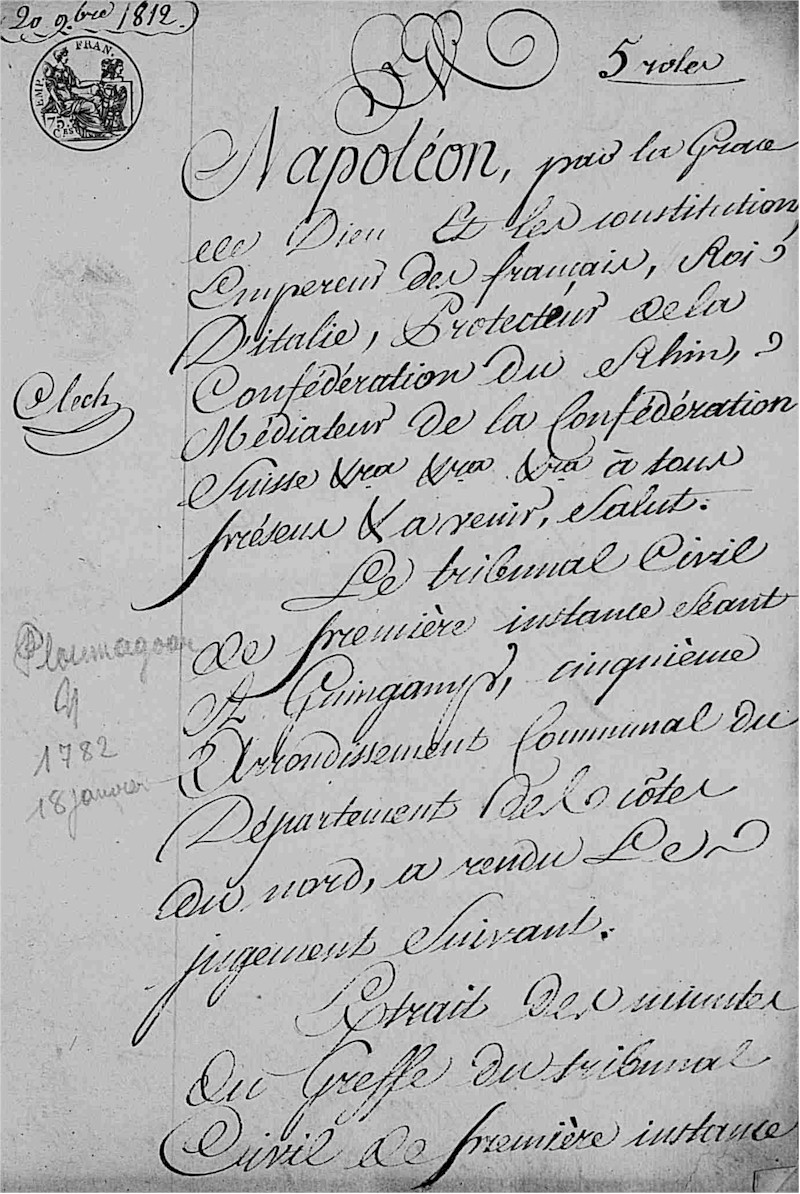 20 9bre 1812.
EMP. FRAN.
75.
5 roles
Napoléon, par la Grace
de Dieu Et les constitution,
Empereur des français, Roi
D'italie, Protecteur de la
Confédération du Rhin,
Clech
Médiateur de la Confédération
Suisse &ra &ra &ra à tous
présens & a venir, Salut.
Le tribunal Civil
de première instance Séant
Ploumagoar
A Guingamp, cinquième
Arrondissement Communal du
1782
18 janvier
Département des côtes
du nord, a rendu Le
jugement Suivant.
Extrait des minutes
du Greffe du tribunal
Civil de première instance